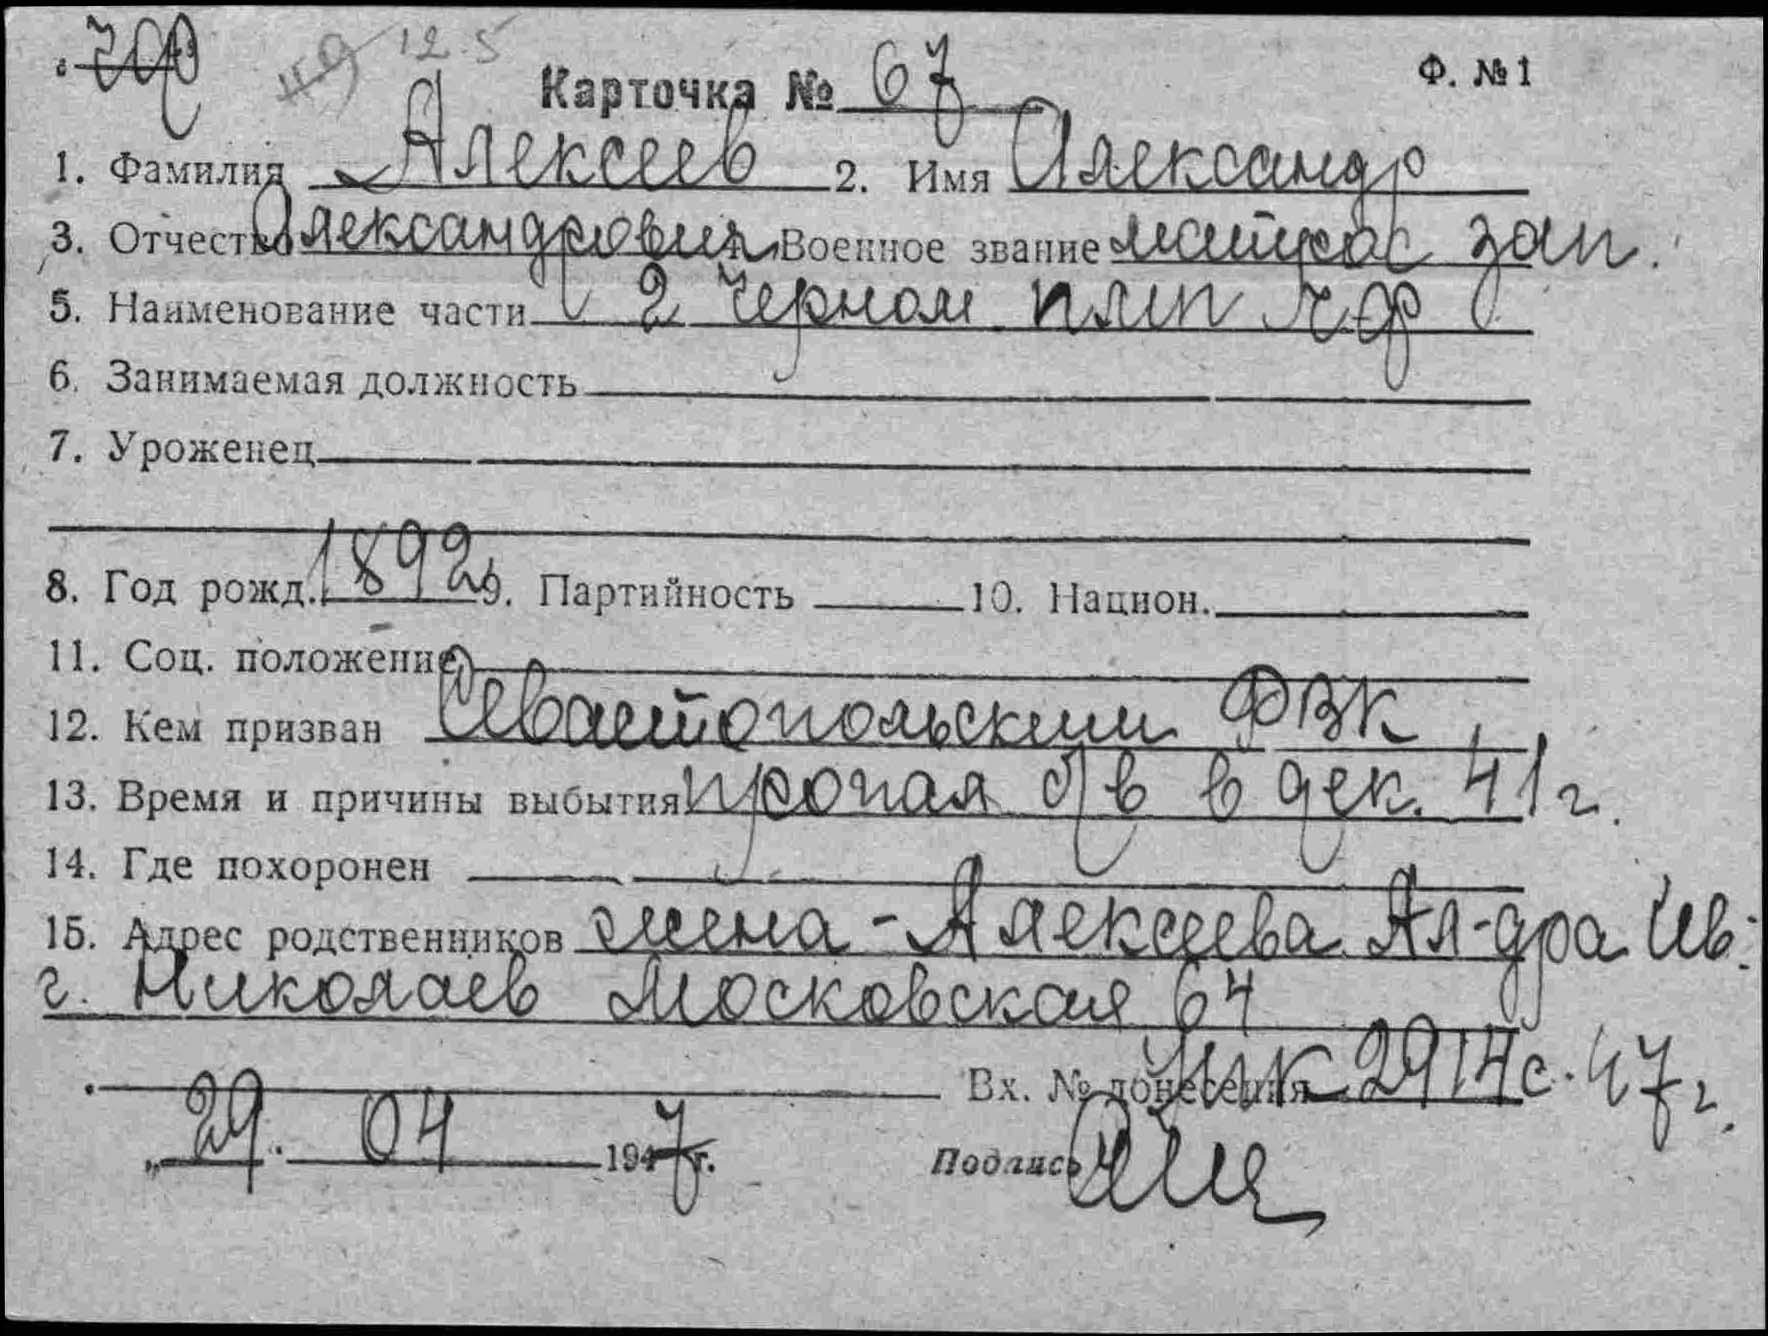 чф 12.5
Карточка № 67 Ф. №1
1. Фамилия Алексеев 2. Имя Александр
3. Отчество Александрович Военное звание матрос зап.
5. Наименование части 2 Черном пмп ЧФ
6. Занимаемая должность
7. Уроженец
8. Год рожд. 1892 9. Партийность 10. Национ.
11. Соц. положение
12. Кем призван Севастопольским ФВК
13. Время и причины выбытия пропал б/в в дек. 41 г.
14. Где похоронен
15. Адрес родственников жена - Алексеева Ал-дра Ив.
г. Николаев Московская 64
Вх. № донесения 2914с. 47 г.
„29. 04 1947 г. Подпись